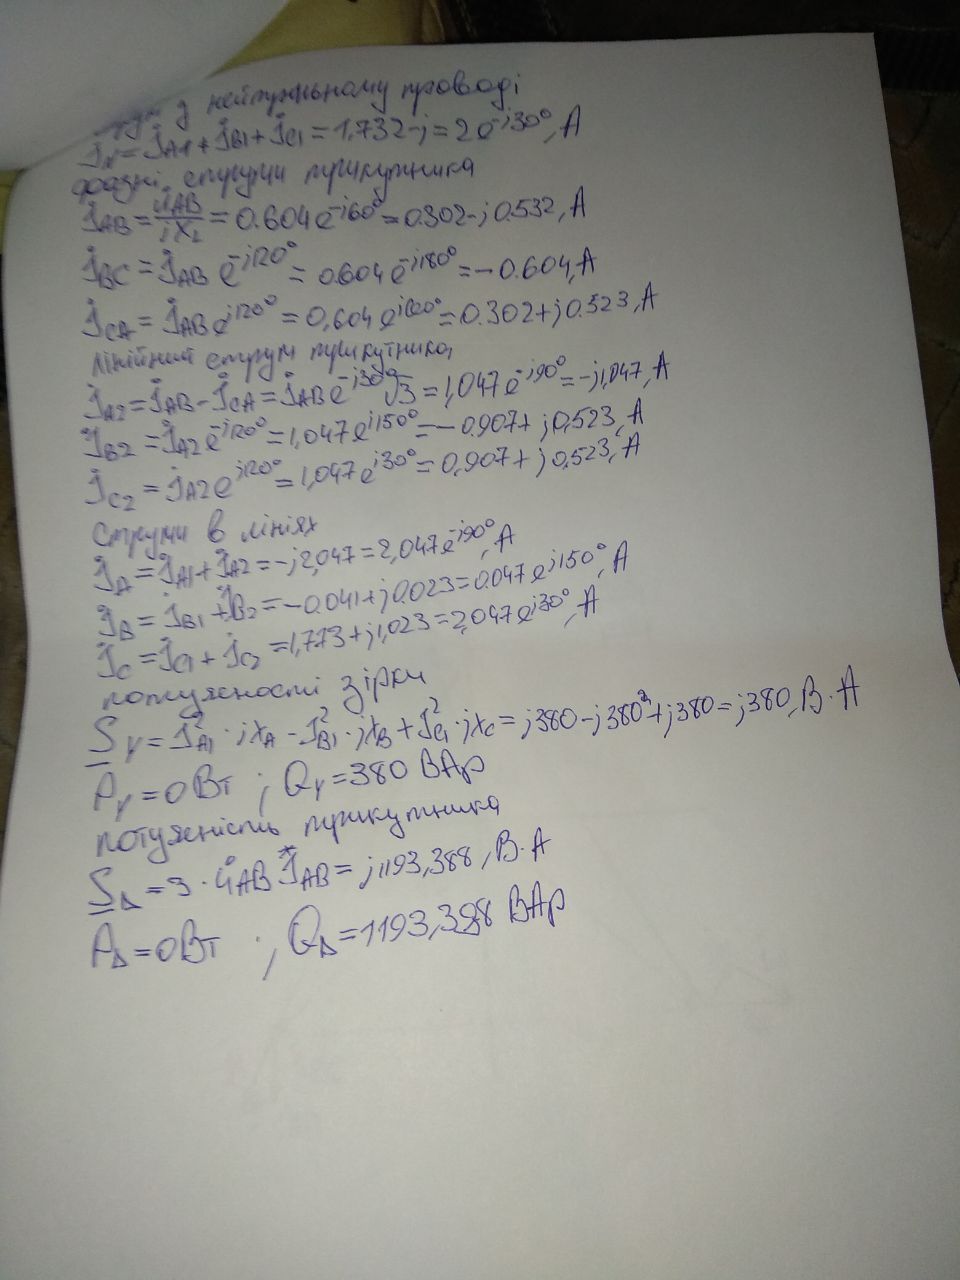 у нейтральному проводі
İN = İA1 + İB1 + İC1 = 1,732 - j = 2e^-j30°, A
фазні струми трикутника
İAB = U̇AB/jXL = 0.604e^-j60° = 0.302 - j0.532, A
İBC = İAB e^-j120° = 0.604e^-j180° = -0.604, A
İCA = İAB e^j120° = 0,604e^j60° = 0.302 + j0.523, A
Лінійний струм трикутника,
İA2 = İAB - İCA = İAB e^-j30° √3 = 1,047e^-j90° = -j1,047, A
İB2 = İA2 e^-j120° = 1,047e^j150° = -0.907 + j0,523, A
İC2 = İA2 e^j120° = 1,047e^j30° = 0,907 + j0.523, A
Струми в лініях
İA = İA1 + İA2 = -j2,047 = 2,047e^-j90°, A
İB = İB1 + İB2 = -0.041 + j0.023 = 0.047e^j150°, A
İC = İC1 + İC2 = 1,773 + j1,023 = 2,047e^j30°, A
потужності зірки
SY = I²A1 · jXA - I²B1 · jXB + I²C1 · jXC = j380 - j380² + j380 = j380, В·А
PY = 0 Вт ; QY = 380 ВАр
потужність трикутника
SΔ = 3 · U̇AB I*AB = j1193,388, В·А
PΔ = 0 Вт ; QΔ = 1193,388 ВАр